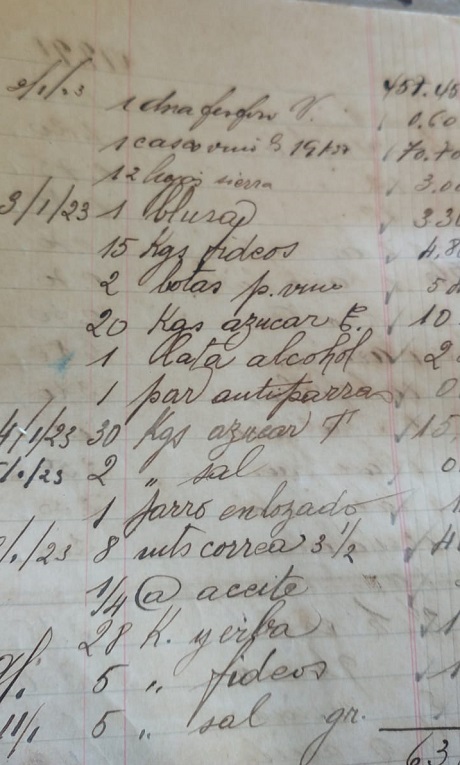 457.45
2/1/23 1 dna fosforo V. 0.60
1 casco vino 70.70
12 hojas sierra 3.00
3/1/23 1 blusa 3.30
15 Kgs fideos 4.80
2 botas p. vino 5
20 Kgs azucar E. 10
1 lata alcohol 2
1 par antiparras 0
4/1/23 30 Kgs azucar T 15
5/1/23 2 " sal 0
1 jarro enlozado 1
/1/23 8 mts correa 3 1/2 4
1/4 @ aceite
28 K. yerba 1
5 " fideos 1
11/1 5 " sal gr.
63